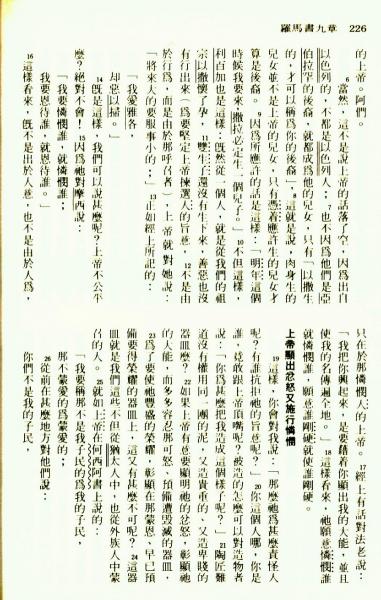 羅馬書九章 226
的上帝。阿們。
6當然,這不是說上帝的話落了空,因爲出自
以色列的,不都是以色列人;也不因爲他們是亞
伯拉罕的後裔,就都成爲他的兒女,只有「以撒生
的,才可以稱爲你的後裔」。8這就是說,肉身生的
兒女並不是上帝的兒女,只有憑着應許生的兒女才
算是後裔。9因爲所應許的話是這樣:「明年這個
時候我要來,撒拉必定生一個兒子。」10不但這樣,
利百加也是這樣:旣然從一個人,就是從我們的祖
宗以撒懷了孕,11雙生子還沒有生下來,善惡也沒
有行出來(爲要堅定上帝揀選人的旨意,12不是由
於行爲,而是由於那呼召者),上帝就對她說:
「將來大的要服事小的;」13正如經上所記的:
「我愛雅各,
却惡以掃。」
14旣是這樣,我們可以說甚麼呢?上帝不公平
麼?絕對不會!15因爲祂對摩西說:
「我要憐憫誰,就憐憫誰;
我要恩待誰,就恩待誰。」
16這樣看來,旣不是出於人意,也不是由於人爲,
只在於那憐憫人的上帝。17經上有話對法老說:
「我把你興起來,是要藉着你顯出我的大能,並且
使我的名傳遍全地。」18這樣看來,祂願意憐憫誰
就憐憫誰,願意誰剛硬就使誰剛硬。
上帝顯出忿怒又施行憐憫
19這樣,你會對我說:「那麼祂爲甚麼責怪人
呢?有誰抗拒祂的旨意呢?」20你這個人哪,你是
誰,竟敢跟上帝頂嘴呢?被造的怎麼可以對造物者
說:「你爲甚麼把我造成這個樣子呢?」21陶匠難
道沒有權用同一團的泥,又造貴重的、又造卑賤的
器皿麼?22如果上帝有意要顯明祂的忿怒,彰顯祂
的大能,而多多容忍那可怒、預備遭毀滅的器皿,
23爲了要使祂豐盛的榮耀,彰顯在那蒙恩、早已預
備要得榮耀的器皿上,這又有甚麼不可呢?24這器
皿就是我們這些不但從猶太人中,也從外族人中蒙
召的人。25就如上帝在何西阿書上說的:
「我要稱那不是我子民的爲我的子民,
那不蒙愛的爲蒙愛的;
26從前在甚麼地方對他們說:
你們不是我的子民,